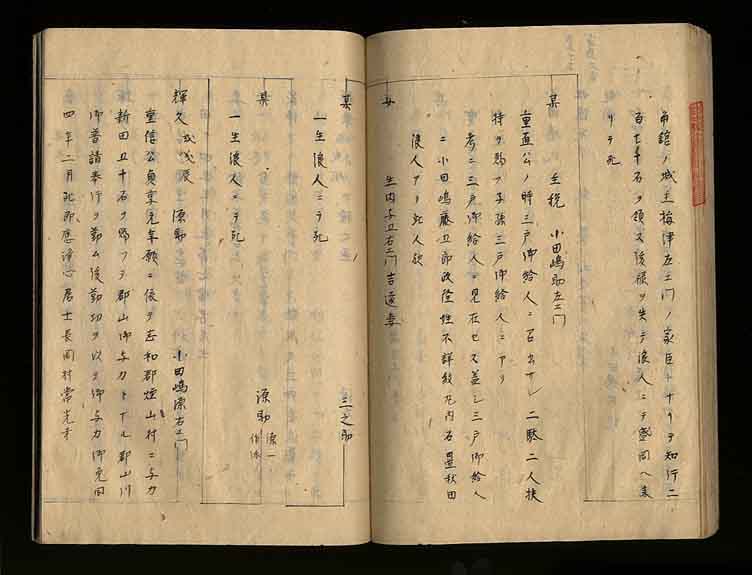 角館ノ城主梅津左エ門ノ家臣トナリテ知行二
百七十石ヲ領ス後禄ヲ失テ浪人ニテ盛岡ヘ来
リテ死
某 主税 小田嶋助左エ門
重直公ノ時三戸御給人ニ召出サレ二駄二人扶
持ヲ賜フ子孫三戸御給人ニアリ
考ニ三戸御給人ニ見在セス蓋シ三戸御給人
ニ小田嶋藤五郎政隆性不詳紋丸内石畳秋田
浪人アリ此人欤
女 生内与五右エ門吉道妻
某 之助
一生浪人ニテ死
某 源助
一生浪人ニテ死
輝久 或茂辰 源助 小田嶋源右エ門
一重信公貞享元年願ニ依テ志和郡煙山村ニ与力
新田五十石ヲ賜フテ郡山御与力トナル郡山川
御普請奉行ヲ勤ム後勤功ヲ以テ御与力御免同
四年二月死 居士長岡村常光寺